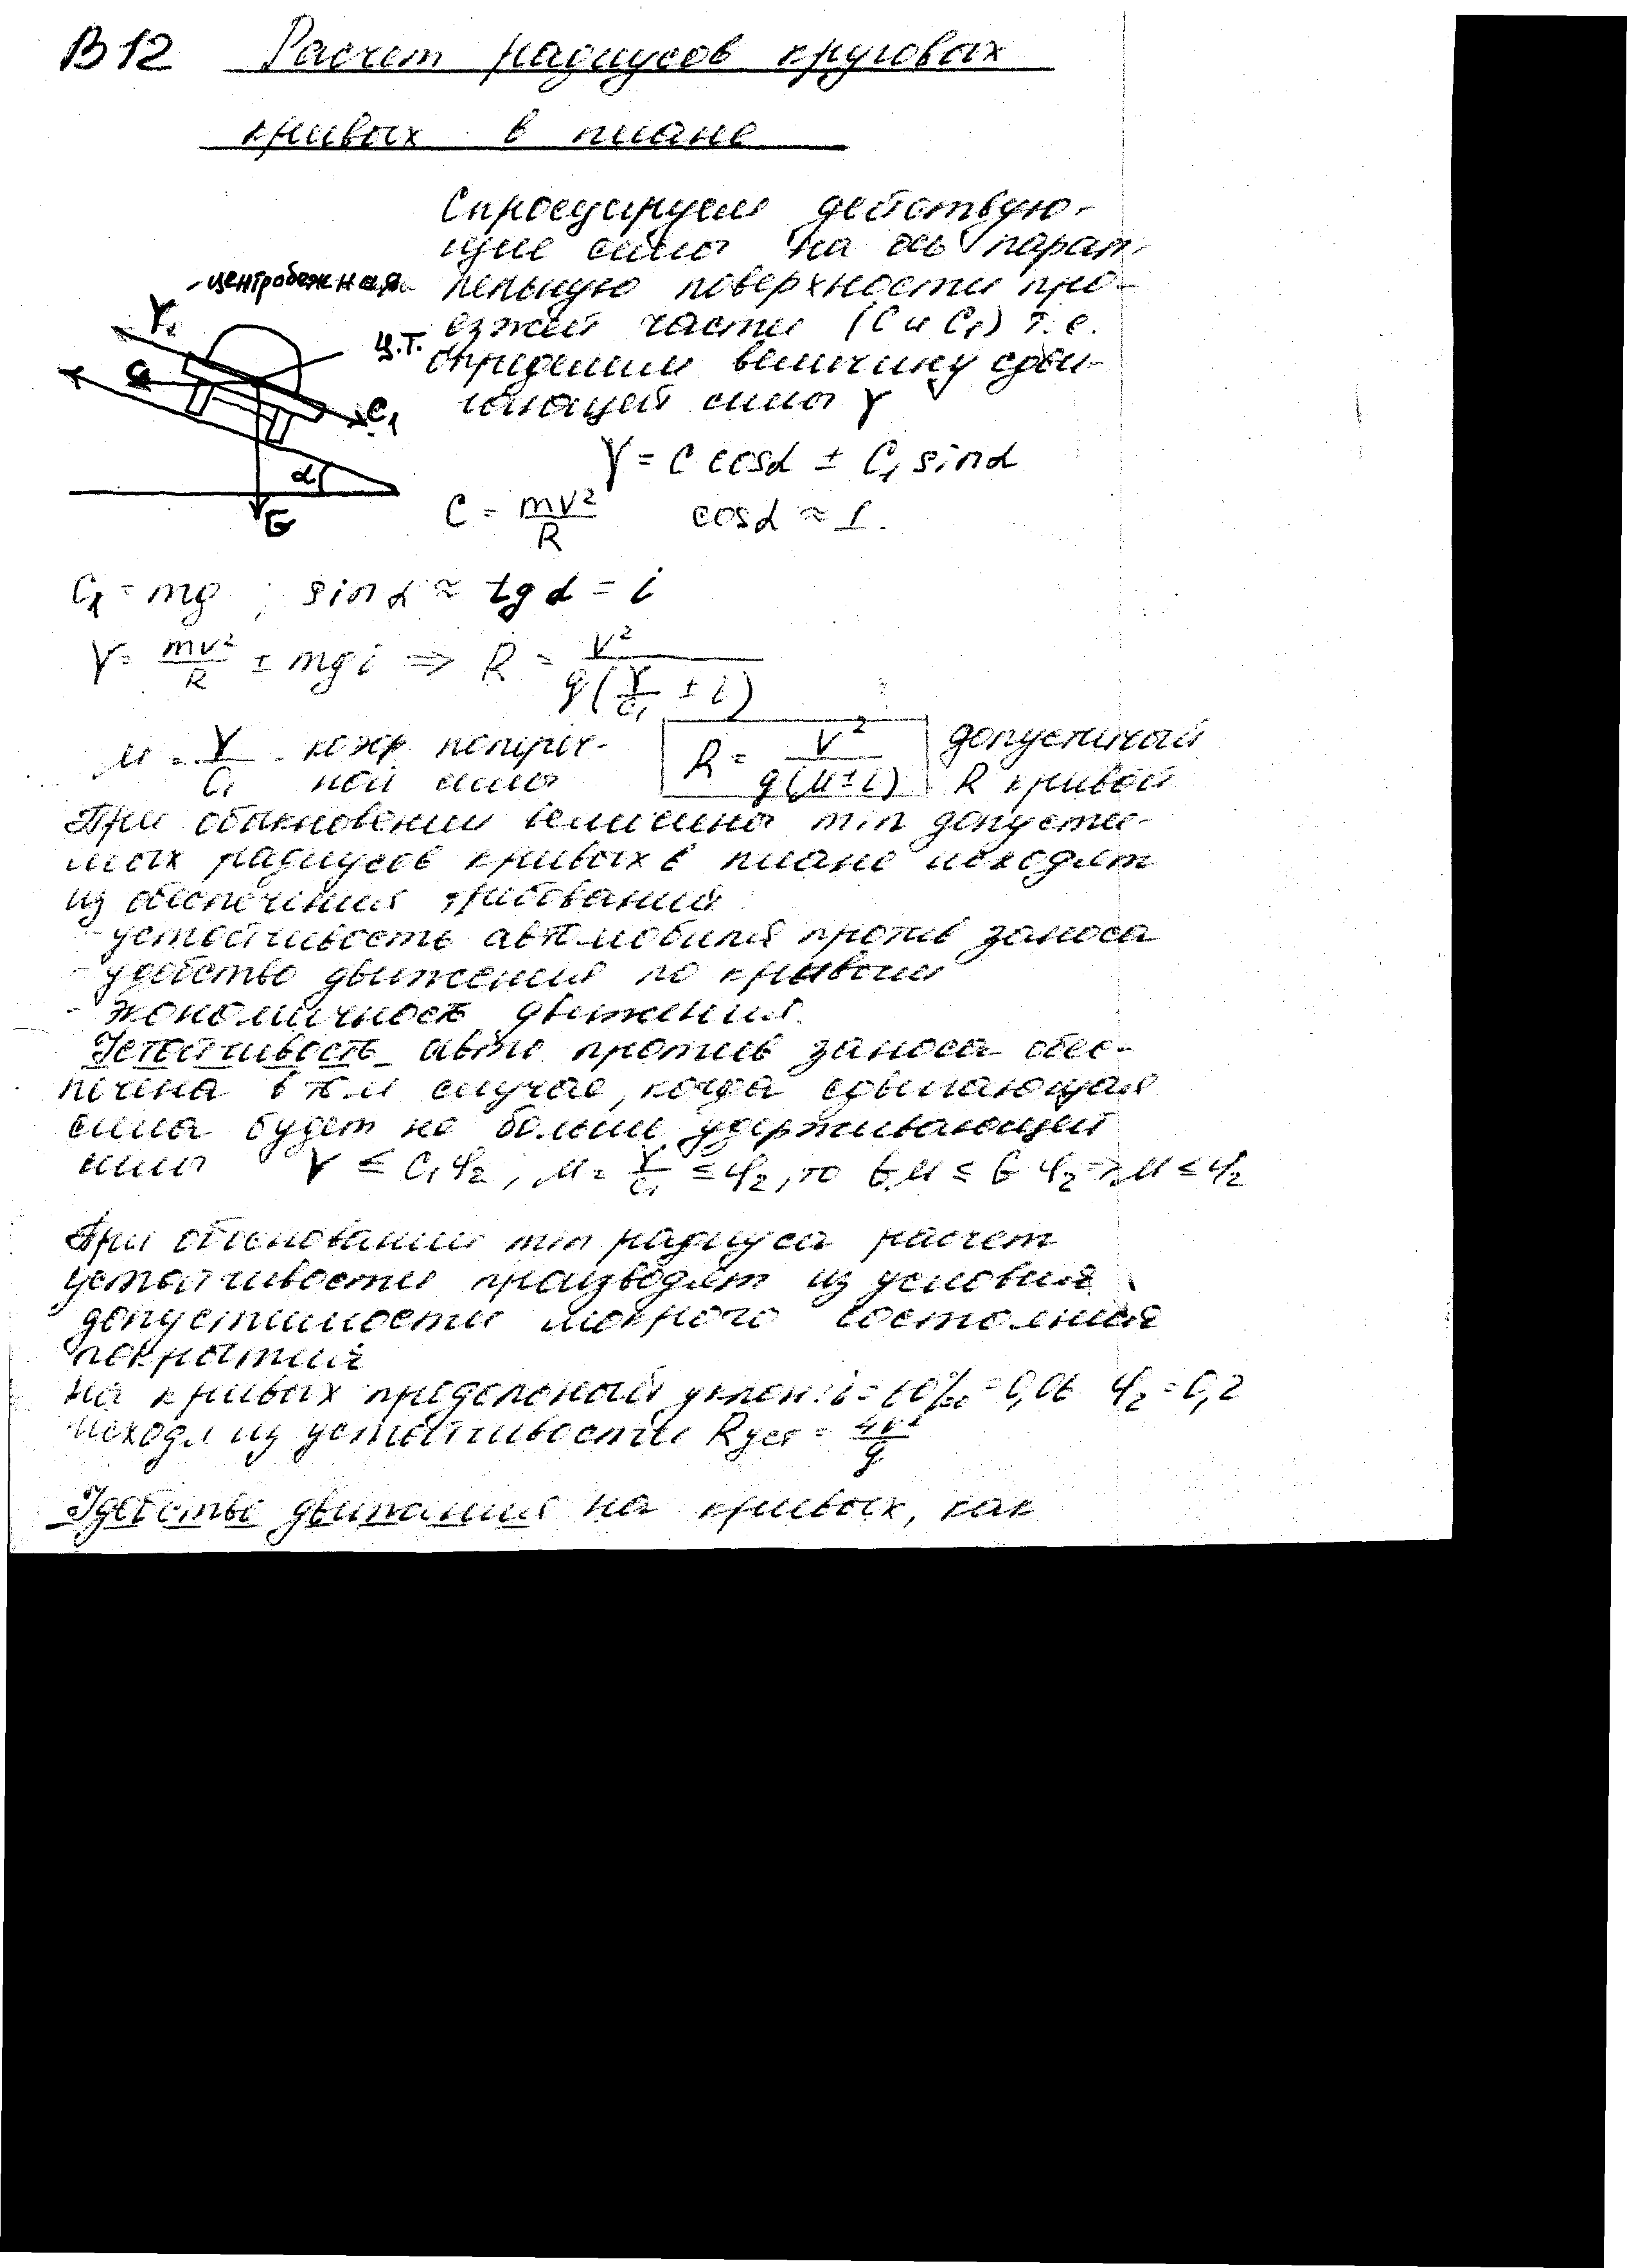 В12 Расчет радиусов круговых
кривых в плане
Спроецируем действую-
щие силы на ось парал-
лельную поверхности про-
езжей части (C и C₁) т.е.
определим величину сдви-
гающей силы Y
- центробежная
Y
ц.т.
C₁
α
G
Y = C cosα ± C₁ sinα
C = mv²/R cosα ≈ 1.
C₁ = mg ; sinα ≈ tgα = i
Y = mv²/R ± mgi ⇒ R = V²/g(Y/C₁ ± i)
μ = Y/C₁ - коэф. попереч-
ной силы
R = V²/g(μ±i)
допустимый
R кривой
При обосновании величины min допусти-
мых радиусов кривых в плане исходят
из обеспечения требований
- устойчивость автомобиля против заноса
- удобство движения по кривым
- экономичность движения.
Устойчивость авто против заноса обес-
печена в том случае, когда сдвигающая
сила будет не больше удерживающей
силы Y ≤ C₁φ₂, μ = Y/C₁ ≤ φ₂, то Gμ ≤ G φ₂ ⇒ μ ≤ φ₂
При обосновании min радиуса расчет
устойчивости производят из условия
допустимости мокрого состояния
покрытия
На кривых предельный уклон: i = 60‰ = 0,06 φ₂ = 0,2
Исходя из устойчивости Rуст = 4v²/g
Удобство движения на кривых, как